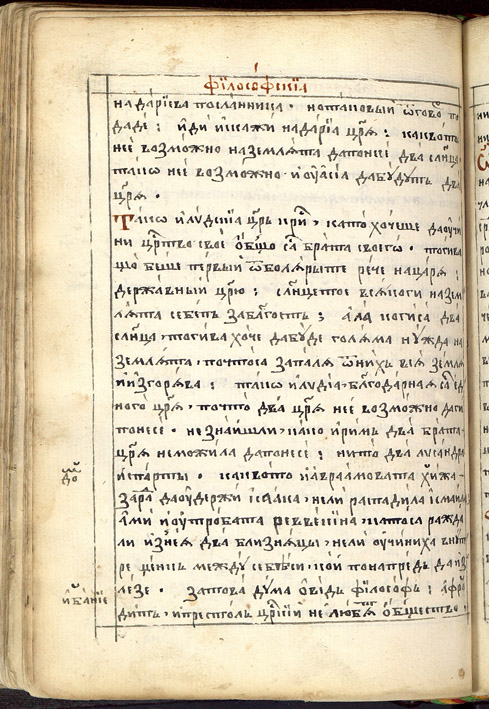 філософскія
на даріева посланника · но таковый ѿгово
даде : иди и скажи на дарія цр҃я : каквото
нее возможно на земля та да понесе два слнца
тако нее возможно и оу асіа да будутъ два
цр҃я ·
Тако и лидскія цр҃ь като хочеше да оучи
ни цр҃тво свое обще са брата своего · тогива
що беше первый ѿ болярыте рече на царя :
державный цр҃ю : слнцето е всякоги на зем
лята себепъ за благость : ала когиса два
слнца , тогива хоче да буде голяма нужда на
землята , почтоса запаля ѿ нихъ вся земля
и изгорява : тако и лидіа , благодарна я са ед
ного цр҃я , почто два цр҃я нее возможно да ги
понесе · незнаишли , како и римь два брата
цр҃я неможила да понесе : нито два лисандра
и спарты · каквото и авраамовата хижа
зара да оудержи ісаака , нели распадила ісмаила
ами и оутробата реввекіна , катоса ражда
ли из нея два близняцы , нели оучиниха внут
ре шеніе между себеси , кой понапредь да из
лезе · затова дума овідъ філософъ : афро
дитъ , и престолъ цр҃кій не любят общество ·